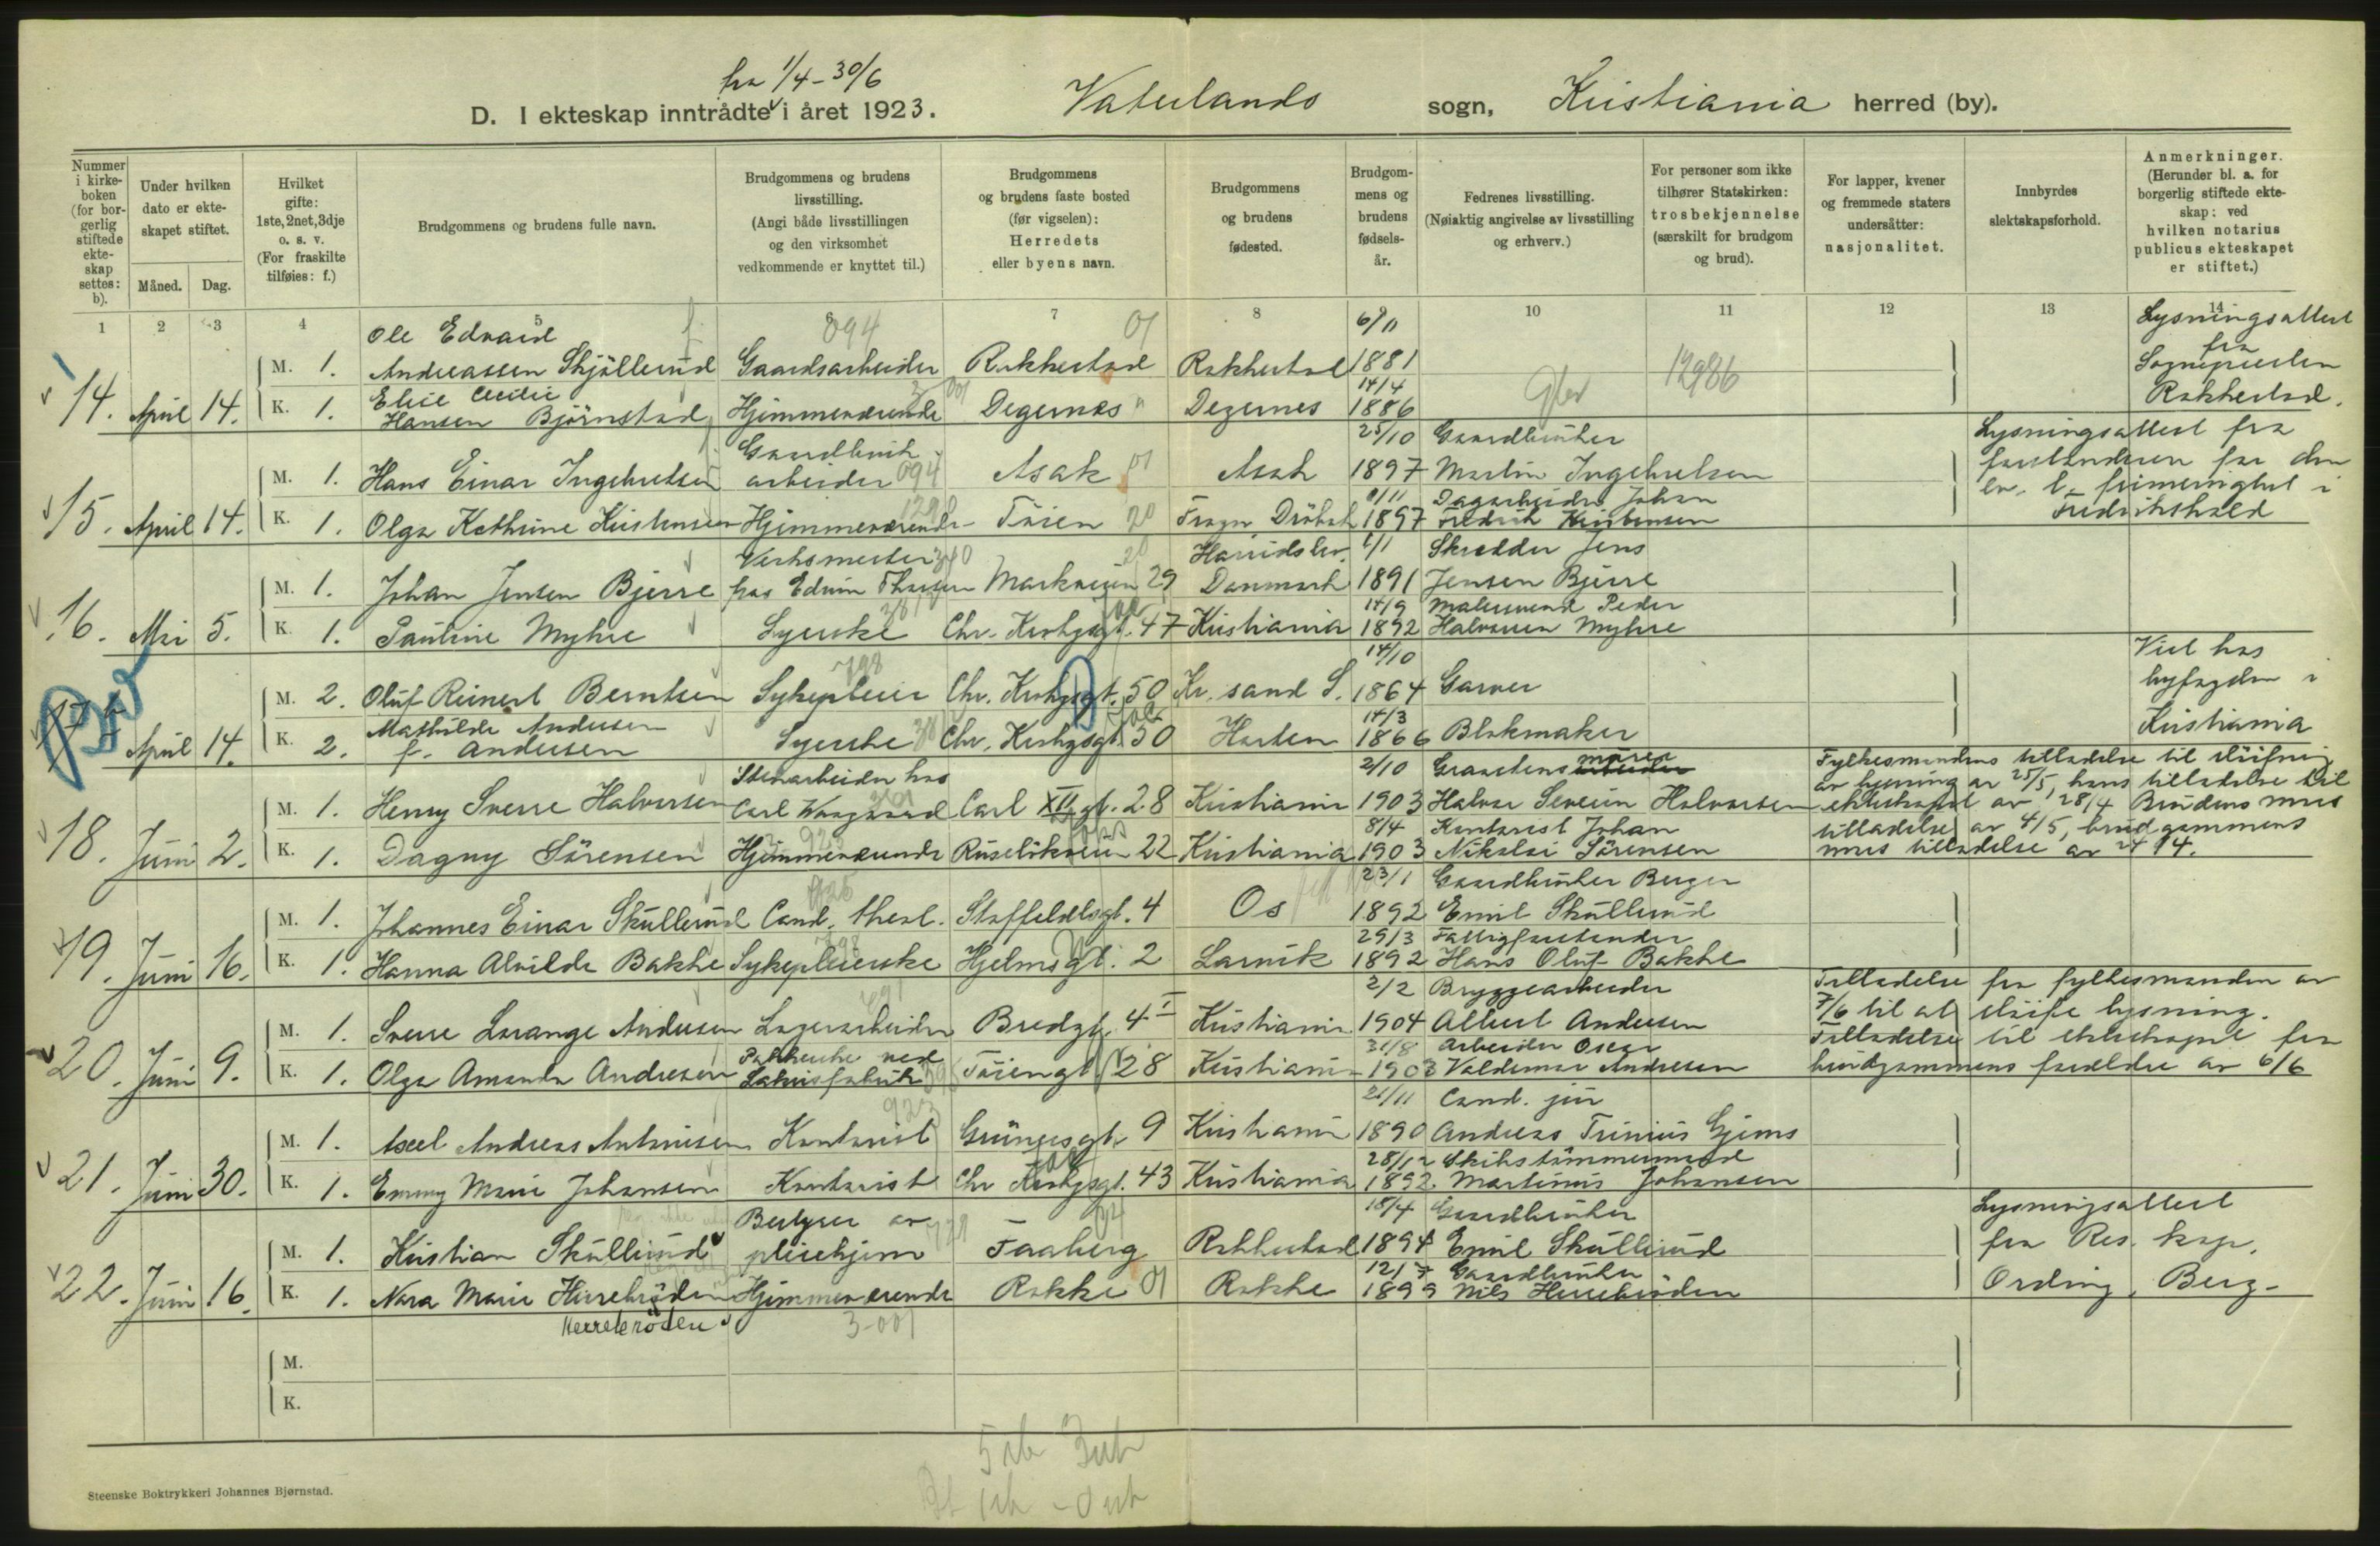 fra 1/4 - 30/6
D. I ekteskap inntrådte i året 1923. Vaterlands sogn, Kristiania herred (by).
Nummer i kirke-boken (for bor-gerlig stiftede ekte-skap settes: b).
Under hvilken dato er ekte-skapet stiftet.
Måned. Dag.
Hvilket gifte: 1ste, 2net, 3dje o. s. v. (For fraskilte tilføies: f.)
Brudgommens og brudens fulle navn.
Brudgommens og brudens livsstilling. (Angi både livsstillingen og den virksomhet vedkommende er knyttet til.)
Brudgommens og brudens faste bosted (før vigselen): Herredets eller byens navn.
Brudgommens og brudens fødested.
Brudgom-mens og brudens fødsels-år.
Fedrenes livsstilling. (Nøiaktig angivelse av livsstilling og erhverv.)
For personer som ikke tilhører Statskirken: trosbekjennelse (særskilt for brudgom og brud).
For lapper, kvener og fremmede staters undersåtter: nasjonalitet.
Innbyrdes slektskapsforhold.
Anmerkninger. (Herunder bl. a. for borgerlig stiftede ekte-skap: ved hvilken notarius publicus ekteskapet er stiftet.)
1 2 3 4 5 6 7 8 10 11 12 13 14
Ole Edvard 094 01 6/11 Lysningsattest
M. 1. Andreassen Skjøllerud Gaardsarbeider Rakkestad Rakkestad 1881 12986 fra Sognepresten
14. April 14. Elise Cecilie 14/4
K. 1. Hansen Bjørnstad Hjemmeværende Degernes Degernes 1886 Rakkestad.
Gaardbruk- 25/10 Gaardbruker Lysningsattest fra
M. 1. Hans Einar Ingebretsen arbeider 094 Asak 01 Asak 1897 Martin Ingebretsen forstanderen for den
15. April 14. Dagarbeider Johan ev. l. frimenighet i
K. 1. Olga Kathrine Kristensen Hjemmeværende Tøien 20 Drøbak 1897 Fredrik Kristensen Fredrikshald
Verksmester 340 1/1 Skredder Jens
M. 1. Johan Jensen Bjerre hos Edvin Markveien 29 Danmark 1891 Jensen Bjerre
16. Mai 5. 14/9 Malersvend Peder
K. 1. Pauline Myhre Syerske Chr. Krohgsgt. 47 Kristiania 1892 Halvorsen Myhre
798 14/10 Viet hos
M. 2. Oluf Reinert Berntsen Sykepleier Chr. Krohgsgt. 50 Kr.sand S. 1864 Garver byfogden i
April 14. Mathilde Andersen 14/3
K. 2. f. Andersen Syerske Chr. Krohgsgt. 50 Horten 1866 Blokmaker Kristiania
Stenarbeider hos 2/10 Granstensmurer Fylkesmandens tilladelse til sløifning
M. 1. Henry Sverre Halvorsen Carl XII gt. 28 Kristiania 1903 Halvor Severin Halvorsen av lysning av 25/5, hans tilladelse til
ekteskapet av 28/4 Brudens mors
18. Juni 2. 8/4 Kontorist Johan tilladelse av 4/5, brudgommens
K. 1. Dagny Sørensen Hjemmeværende Ruseløkveien 22 Kristiania 1903 Nikolai Sørensen mors tilladelse av 24/4.
23/1 Gaardbruker Berger
M. 1. Johannes Einar Skullerud Cand. theol. Staffeldtsgt. 4 Os 1892 Emil Skullerud
19. Juni 16. 29/3 Fattigforstander
K. 1. Hanna Alvilde Bakke Sykepleierske Hjelmsgt. 2 Larvik 1892 Hans Oluf Bakke
2/2 Bryggearbeider Tilladelse fra fylkesmanden av
M. 1. Sverre Lorange Andersen Lagerarbeider Bredgt. 4 I Kristiania 1904 Albert Andersen 7/6 til at sløife lysning.
20. Juni 9. Pakkerske ved 31/8 Arbeider Oscar Tilladelse til ekteskapet fra
K. 1. Olga Amanda Andresen Lakrisfabrik Tøiengt. 28 Kristiania 1903 Valdemar Andresen brudgommens forældre av 6/6
923 21/11 Cand. jur
M. 1. Axel Andreas Antonisen Kontorist Grünersgt. 9 Kristiania 1890 Andreas Trinius Gjems
21. Juni 30. 28/12 Skibstømmermand
K. 1. Emmy Marie Johansen Kontorist Chr Krohgsgt. 43 Kristiania 1892 Martinius Johansen
Bestyrer av 18/4 Gaardbruker Lysningsattest
M. 1. Kristian Skullerud pleiehjem Faaberg Rakkestad 1894 Emil Skullerud fra Res. kap.
22. Juni 16. 12/7 Gaardbruker
K. 1. Nora Marie Herrebrøden Hjemmeværende Rokke 01 Rokke 1899 Nils Herrebrøden Ording, Berg-
Herrebrøden 3-001
M.
K.
Steenske Boktrykkeri Johannes Bjørnstad.